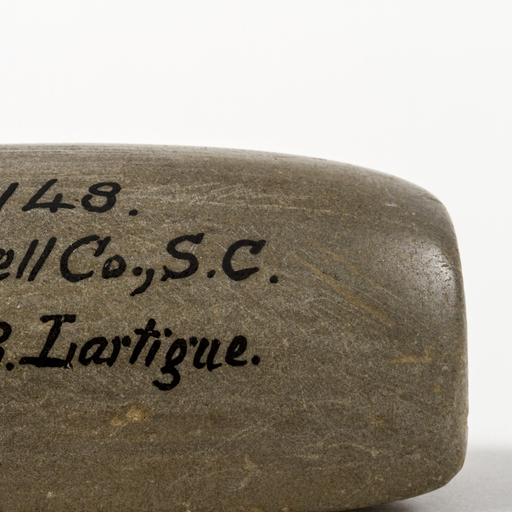 148.
ell Co., S.C.
R. Lartigue.